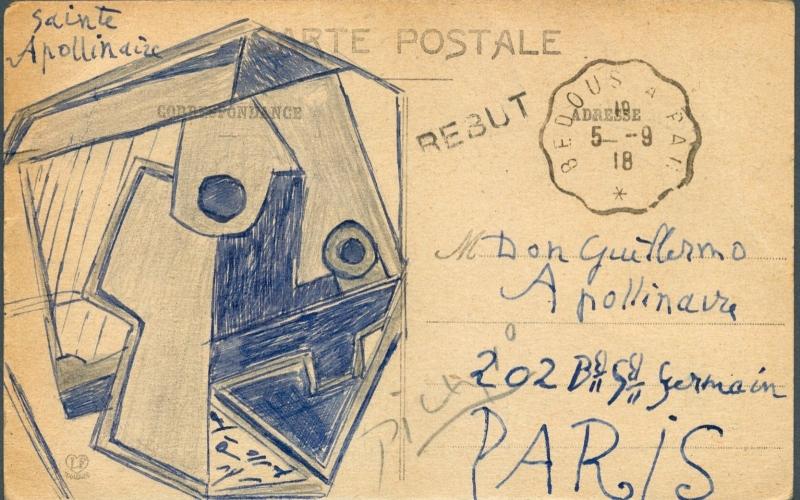 Sainte
Apollinaire
CARTE POSTALE
CORRESPONDANCE
REBUT
ADRESSE
BEDOUS A PAR
19
5 -9
18
*
M Don Guillermo
Apollinaire
202 Bd St Germain
PARIS